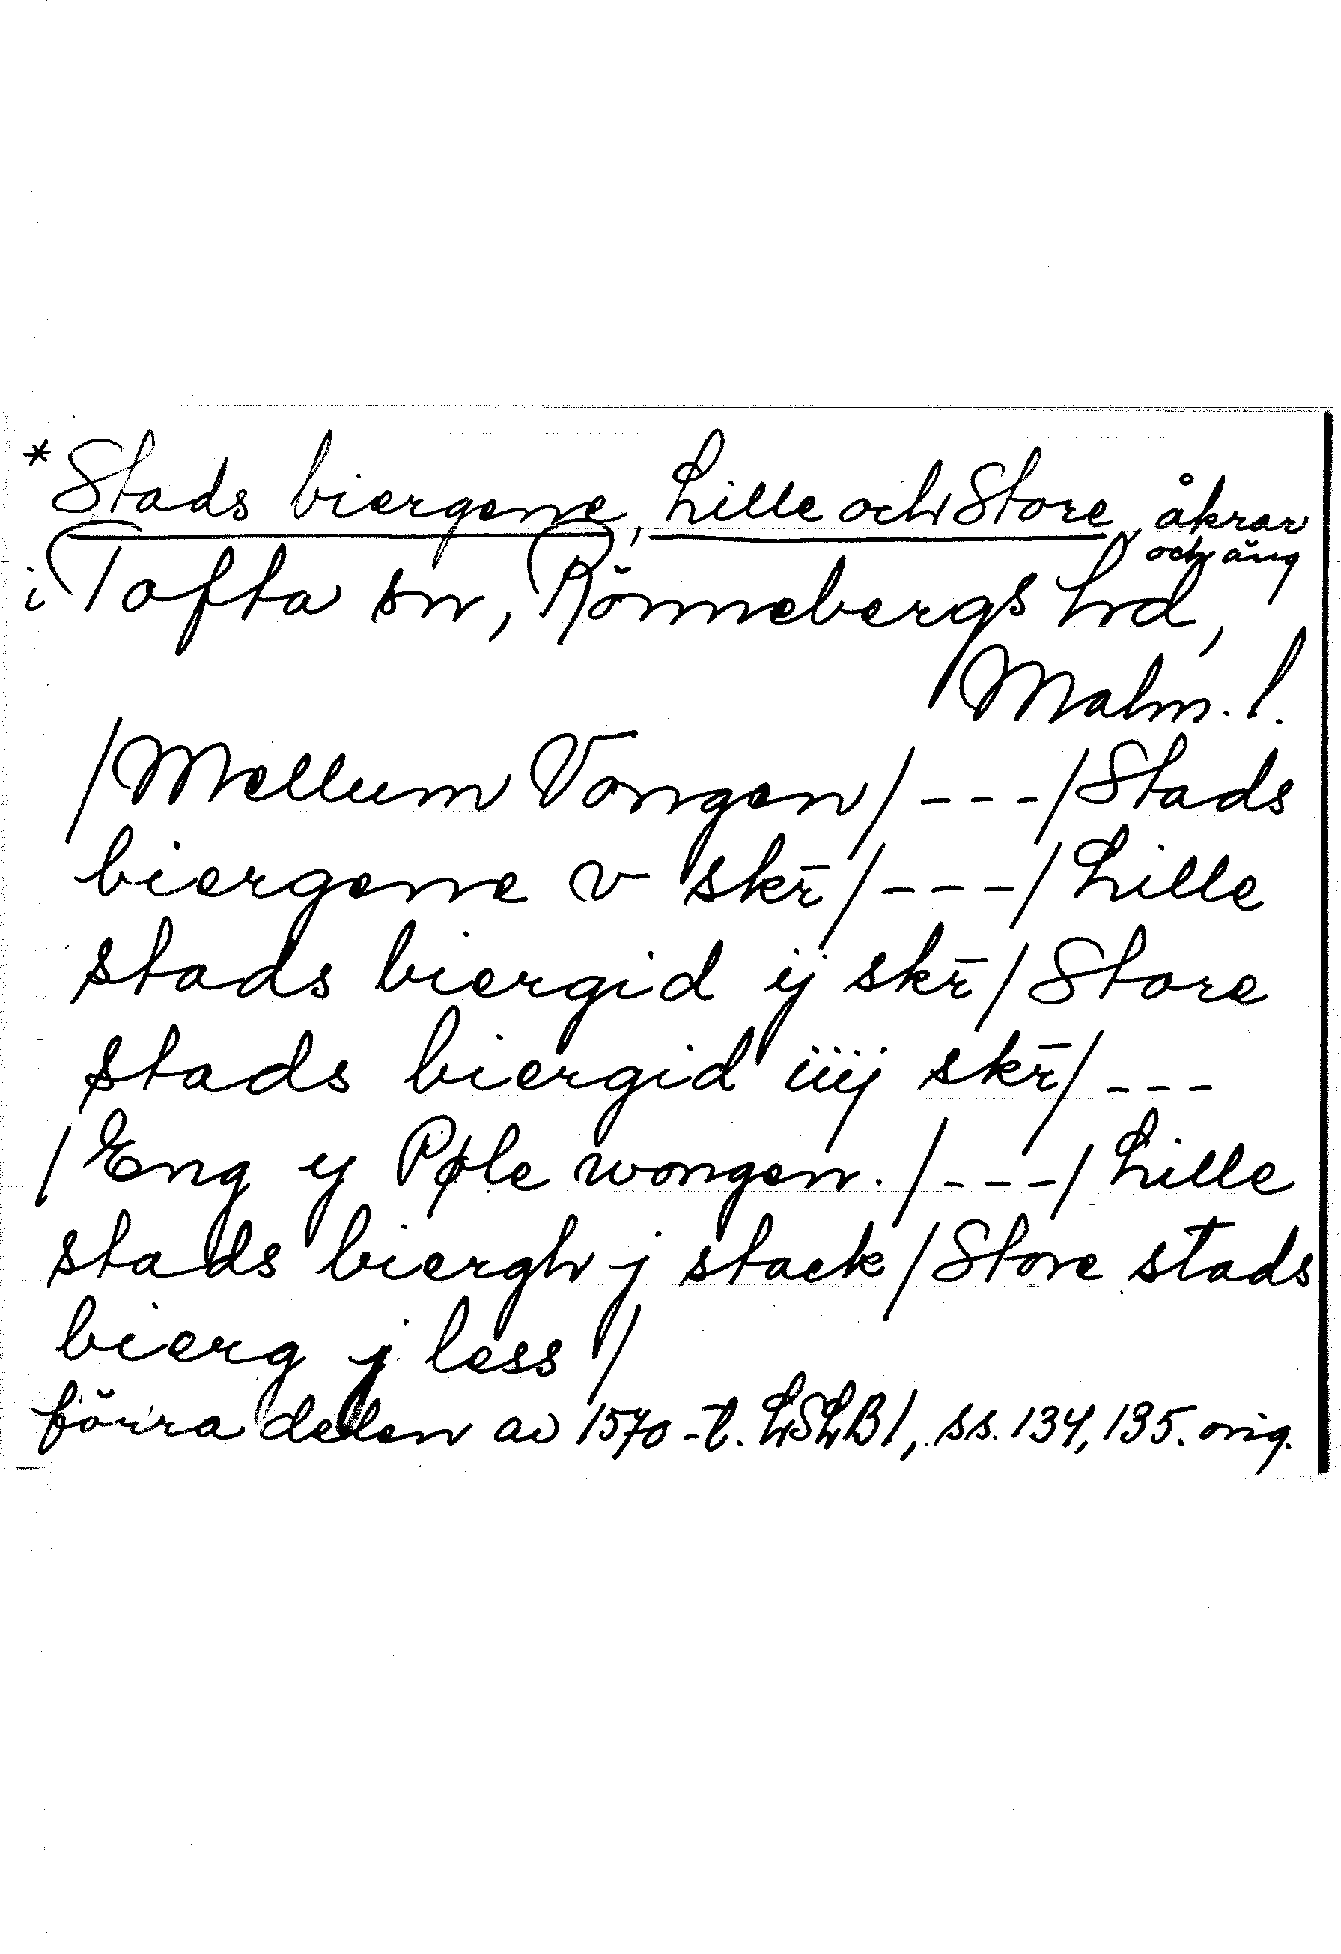 *Stads biergene, Lille och Store, åkrar
och äng
i Tofta sn, Rönnebergs hd,
Malm. l.
/Mellum Vongen/ - - - /Stads
biergene v skr̄/ - - - / Lille
stads biergid ij skr̄/ Store
stads biergid iiij skr̄/ - - -
/ Eng ij Pøle wongen. / - - - / Lille
stads biergh j stack / Store stads
bierg j less /
förra delen av 1570-t. LSLB 1, ss. 134, 135. orig.